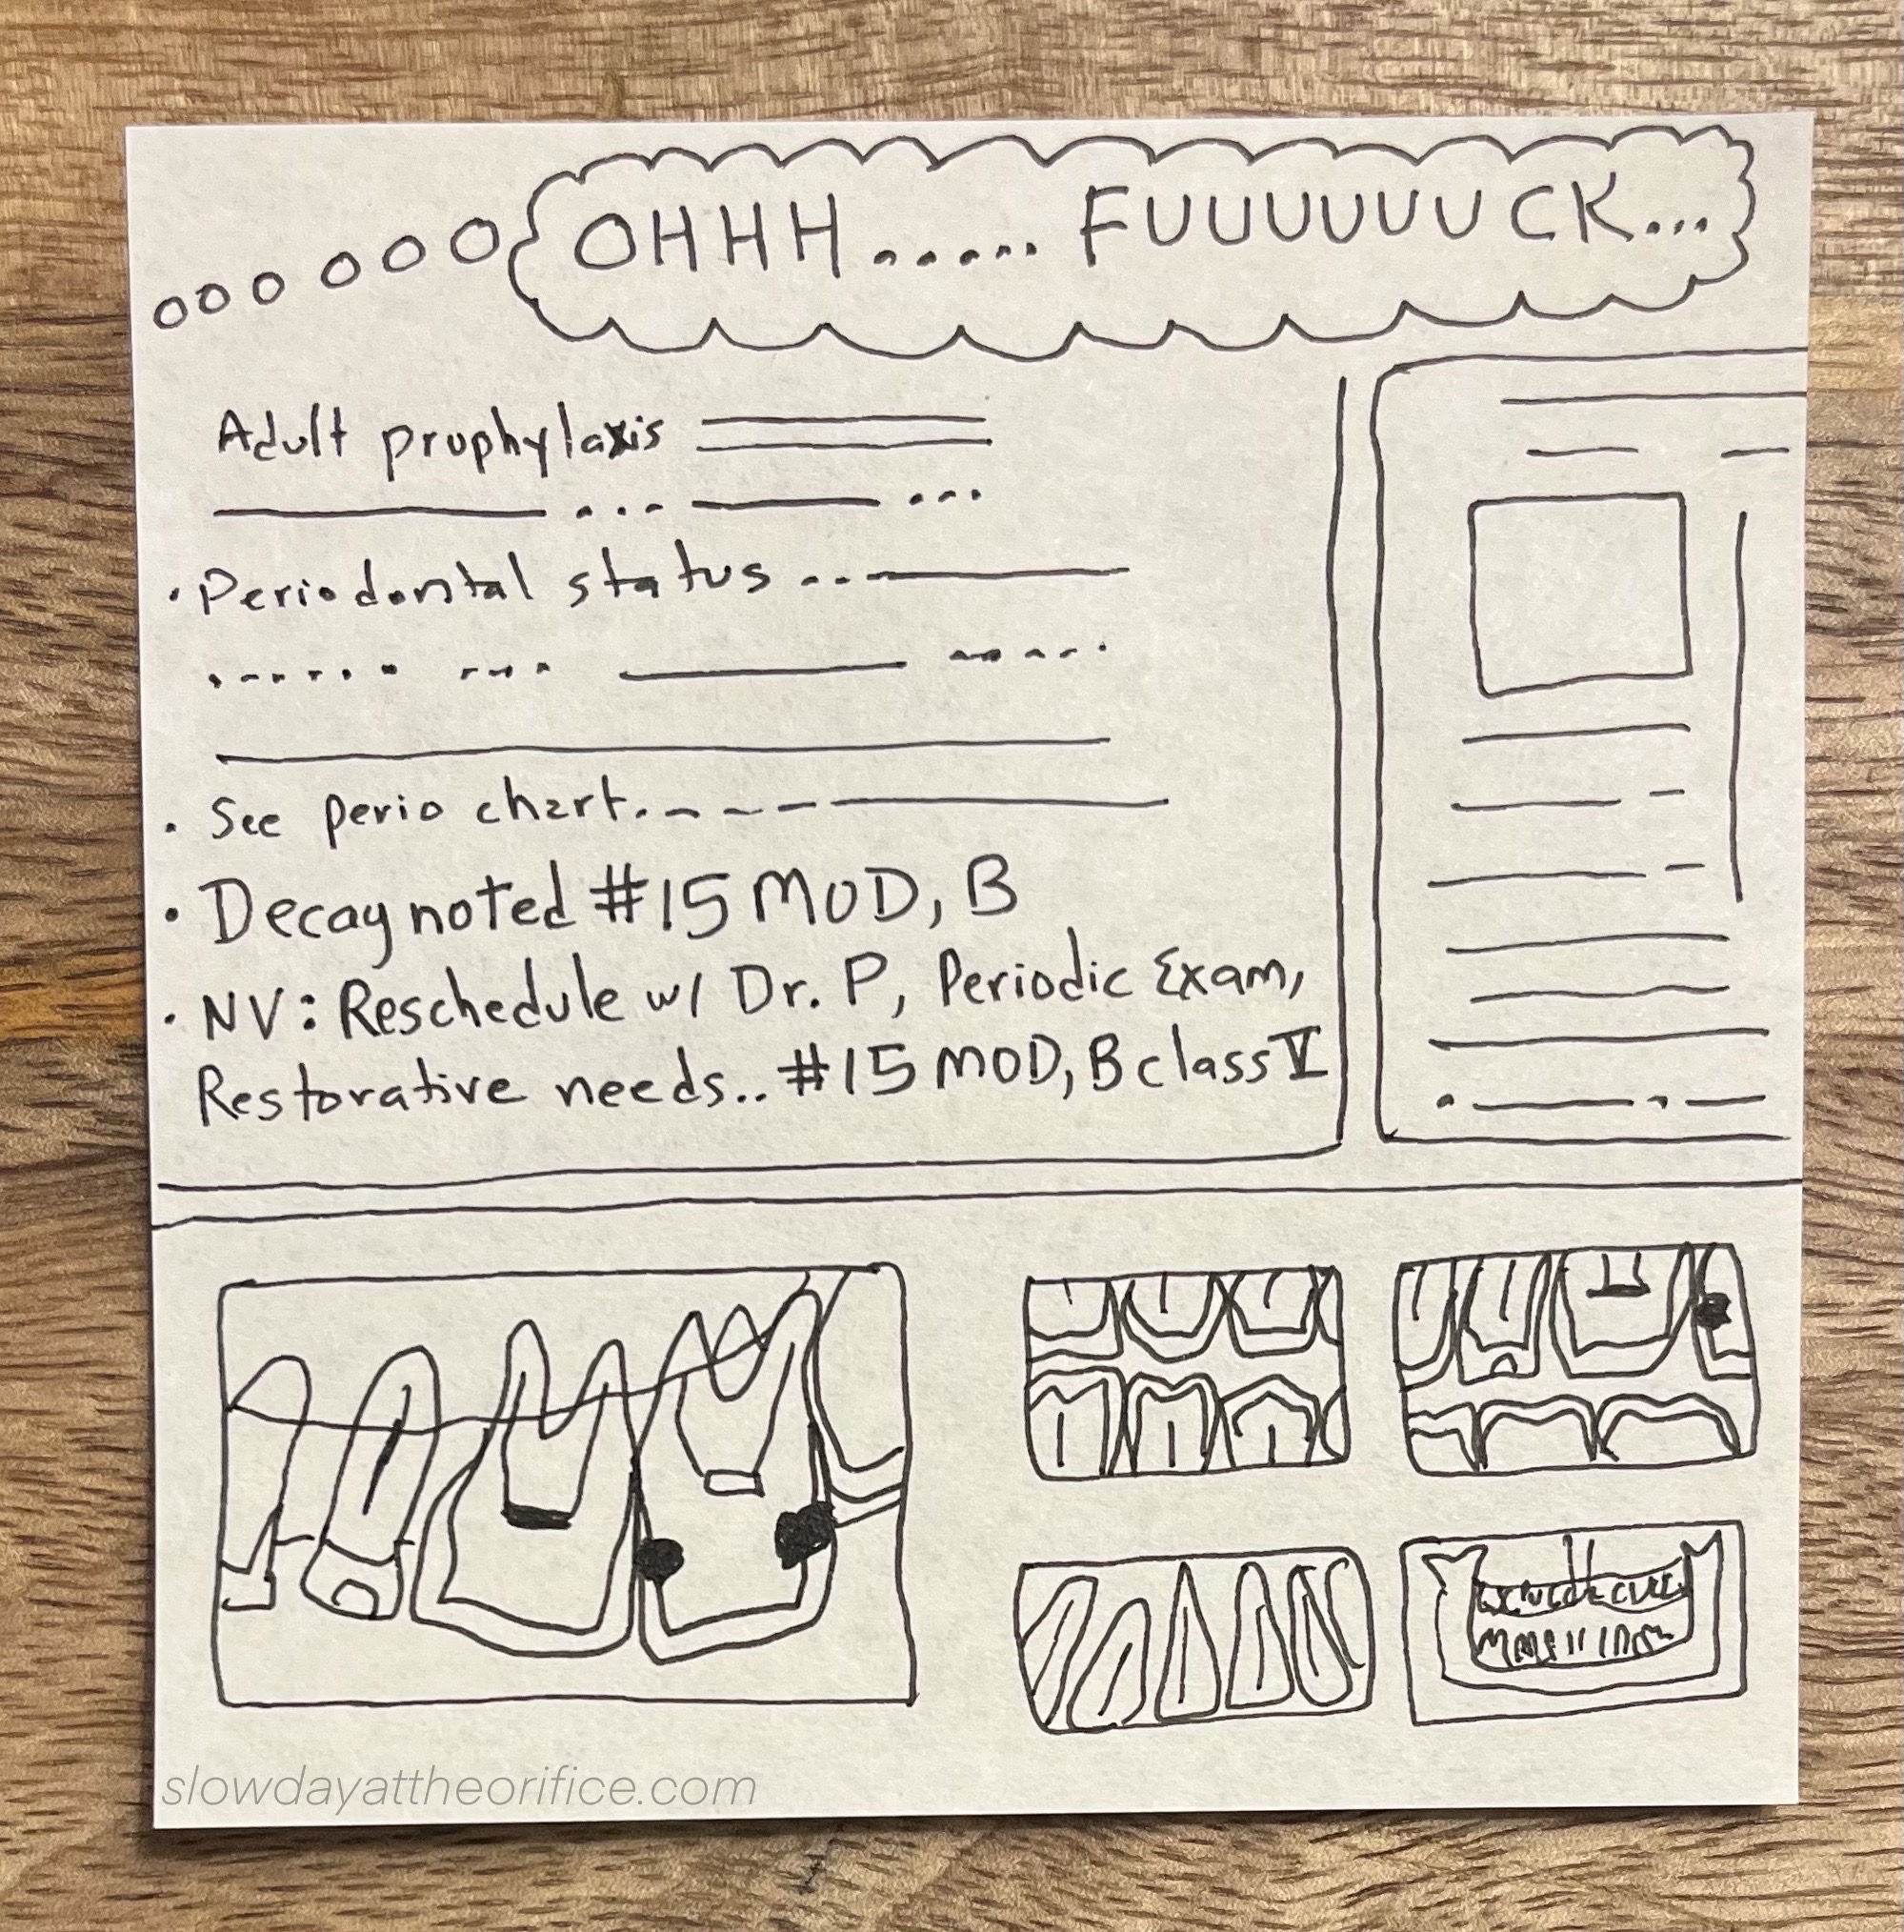 OHHH..... FUUUUUUUCK...
Adult prophylaxis
• Periodontal status
• See perio chart.
• Decay noted #15 MOD, B
• NV: Reschedule w/ Dr. P, Periodic Exam,
Restorative needs.. #15 MOD, B class V
slowdayattheorifice.com